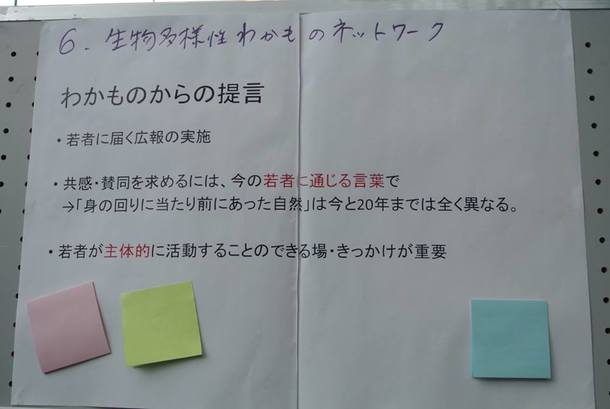 6. 生物多様性わかものネットワーク
わかものからの提言
・若者に届く広報の実施
・共感・賛同を求めるには、今の若者に通じる言葉で
→「身の回りに当たり前にあった自然」は今と20年までは全く異なる。
・若者が主体的に活動することのできる場・きっかけが重要